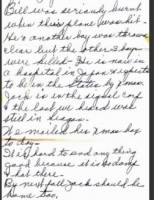 Bill was seriously burnt
when their plane was hit.
He & another boy was thrown
clear but the other 3 boys
were killed. He is now in
a hospital in Japan & expects
to be in the States by Xmas.
Jack is in the signal corp
& the last we heard was
still in
We mailed his Xmas box
to day.
It is hard to send any thing
good because it is so damp
that there.
By next fall Jack should be
home too.